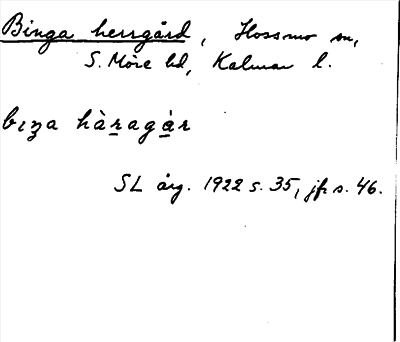 Binga herrgård, Hossmo sn,
S. Möre hd, Kalmar l.
bıꞑa hàragàr
SL årg. 1922 s. 35, jfr s. 46.